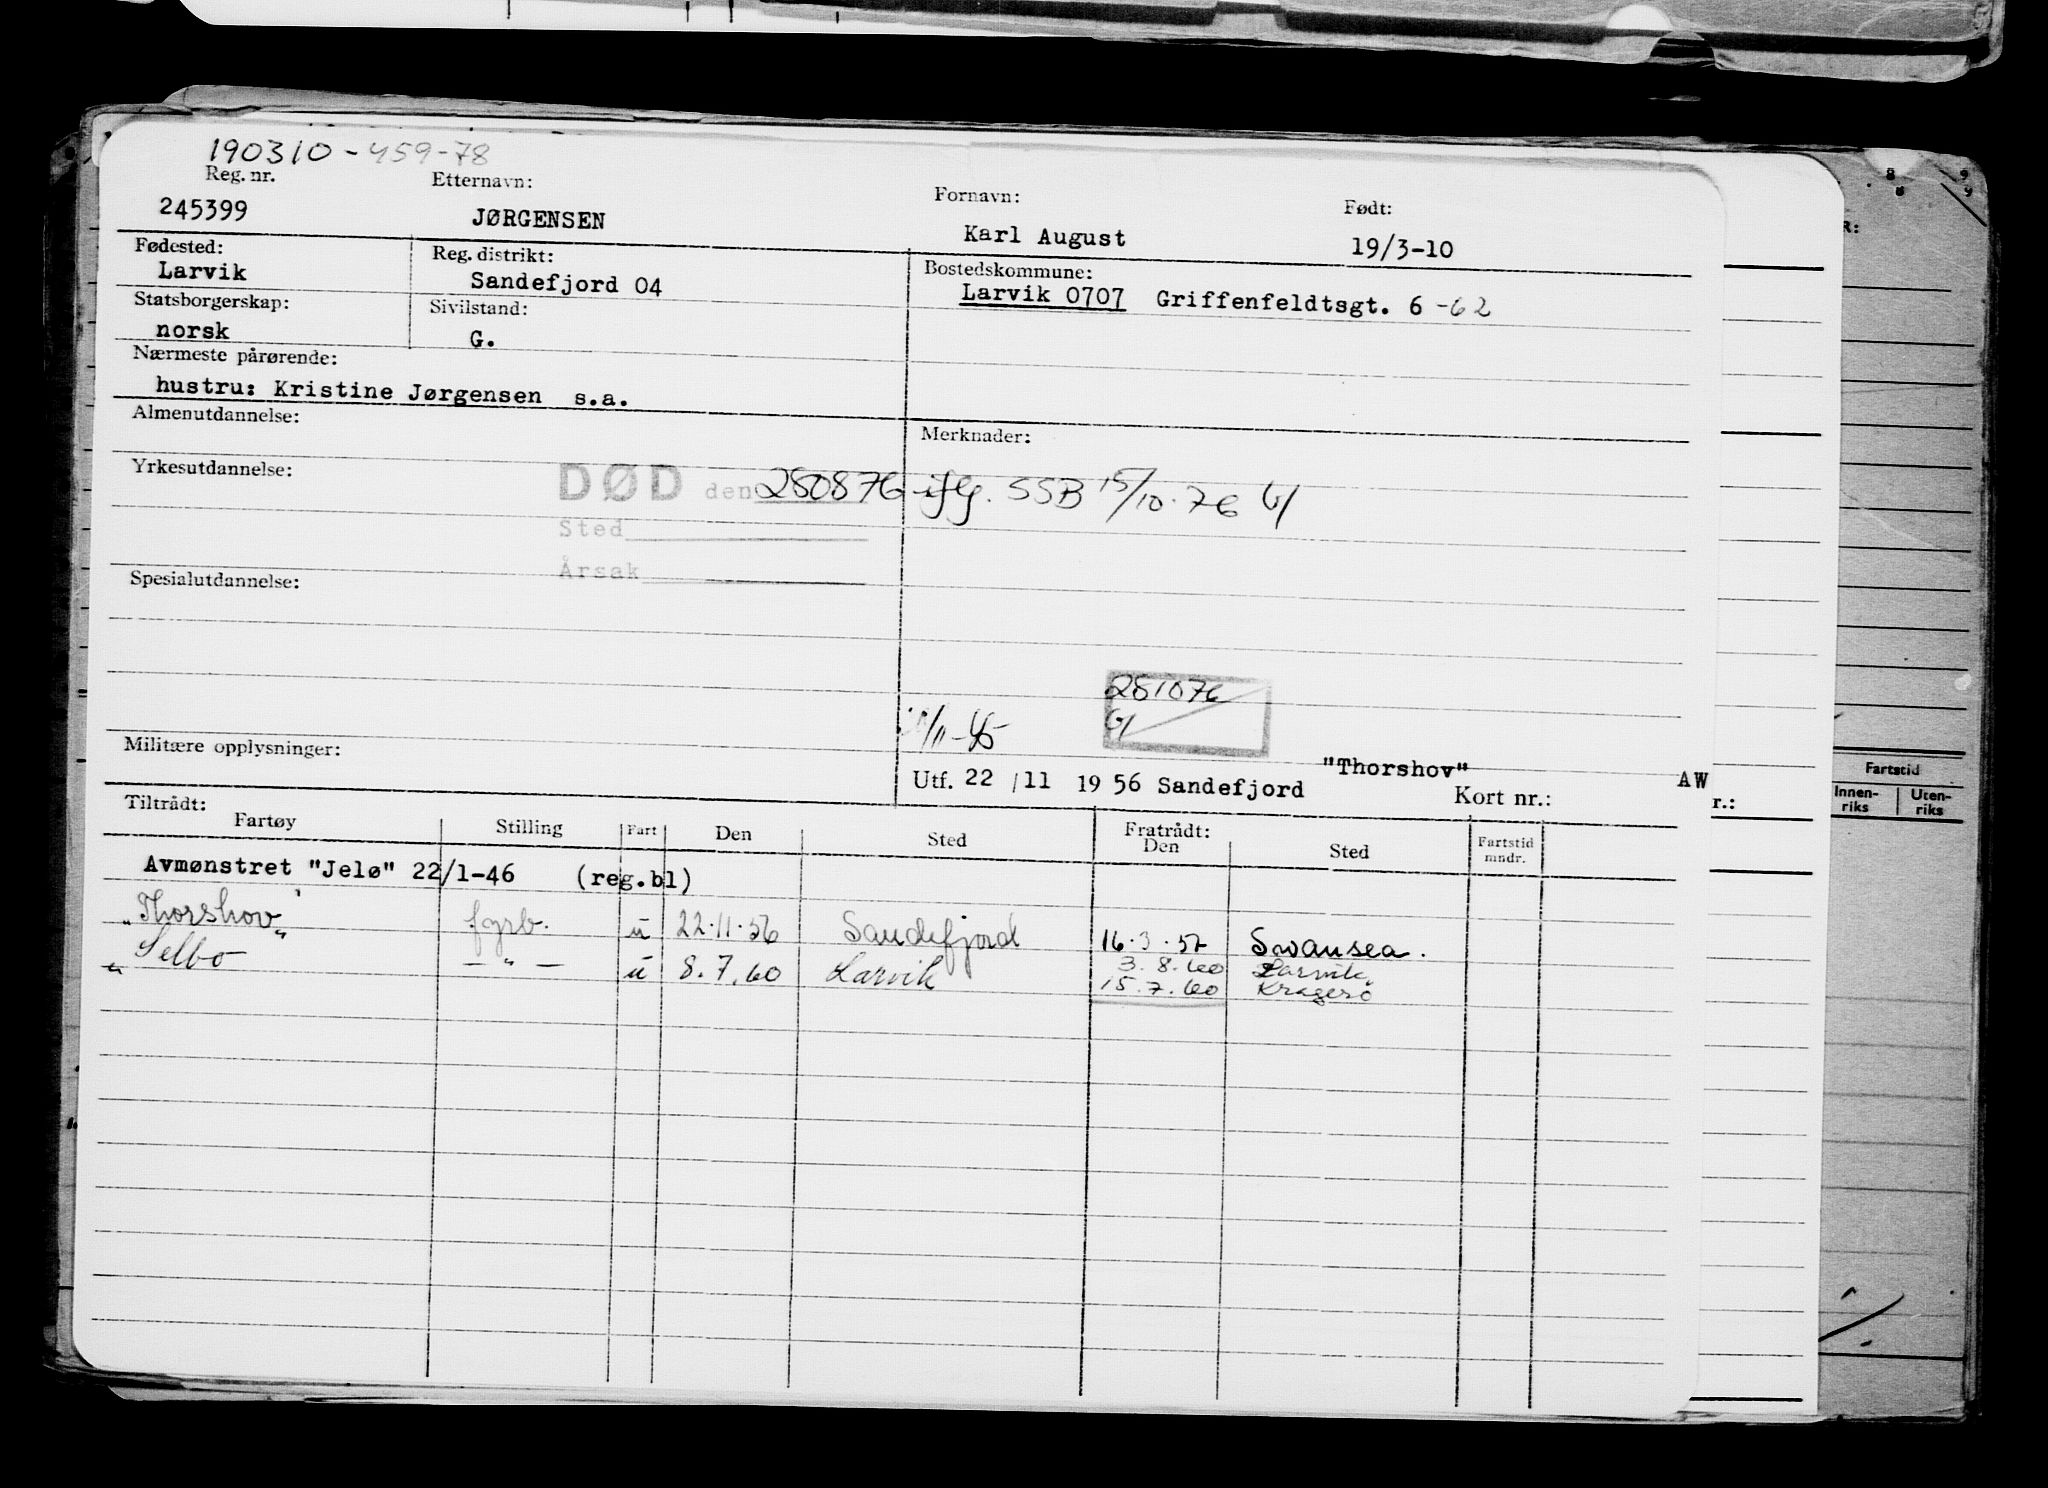 190310-459-78
Reg. nr. Etternavn: Fornavn: Født:
245399 JØRGENSEN Karl August 19/3-10
Fødested: Reg. distrikt: Bostedskommune:
Larvik Sandefjord 04 Larvik 0707 Griffenfeldtsgt. 6 -62
Statsborgerskap: Sivilstand:
norsk G.
Nærmeste pårørende:
hustru: Kristine Jørgensen s.a.
Almenutdannelse: Merknader:
Yrkesutdannelse:
DØD den 280876 iflg. SSB 15/10-76
Sted
Årsak
Spesialutdannelse:
281076
/11-45
Militære opplysninger:
"Thorshov" AW
Utf. 22 /11 19 56 Sandefjord Kort nr.: r.:
Tiltrådt: Fratrådt:
Fartøy Stilling Fart Den Sted Den Sted Fartstid mndr.
Avmønstret "Jelø" 22/1-46 (reg.bl)
"Thorshov" fyrb. u 22.11.56 Sandefjord 16.3.57 Swansea.
" Selbo - " - u 8.7.60 Larvik 3.8.60 Larvik
15.7.60 Kragerö
R:
Fartstid
Innen-riks Uten-riks